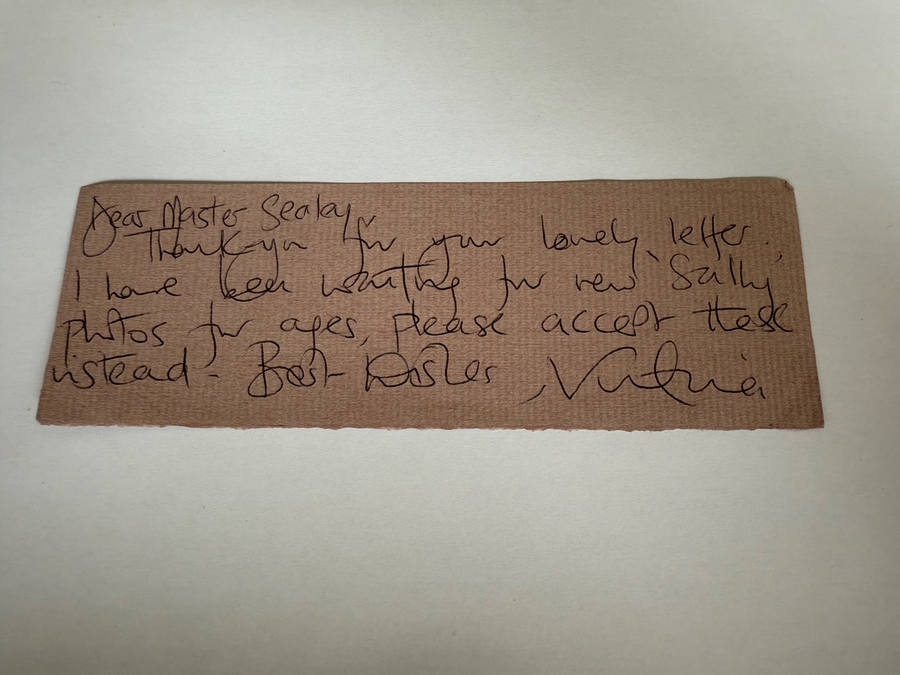 Dear Master Sealey,
Thank-you for your lovely letter.
I have been waiting for new 'Sally'
photos for ages, please accept these
instead - Best Wishes Virginia